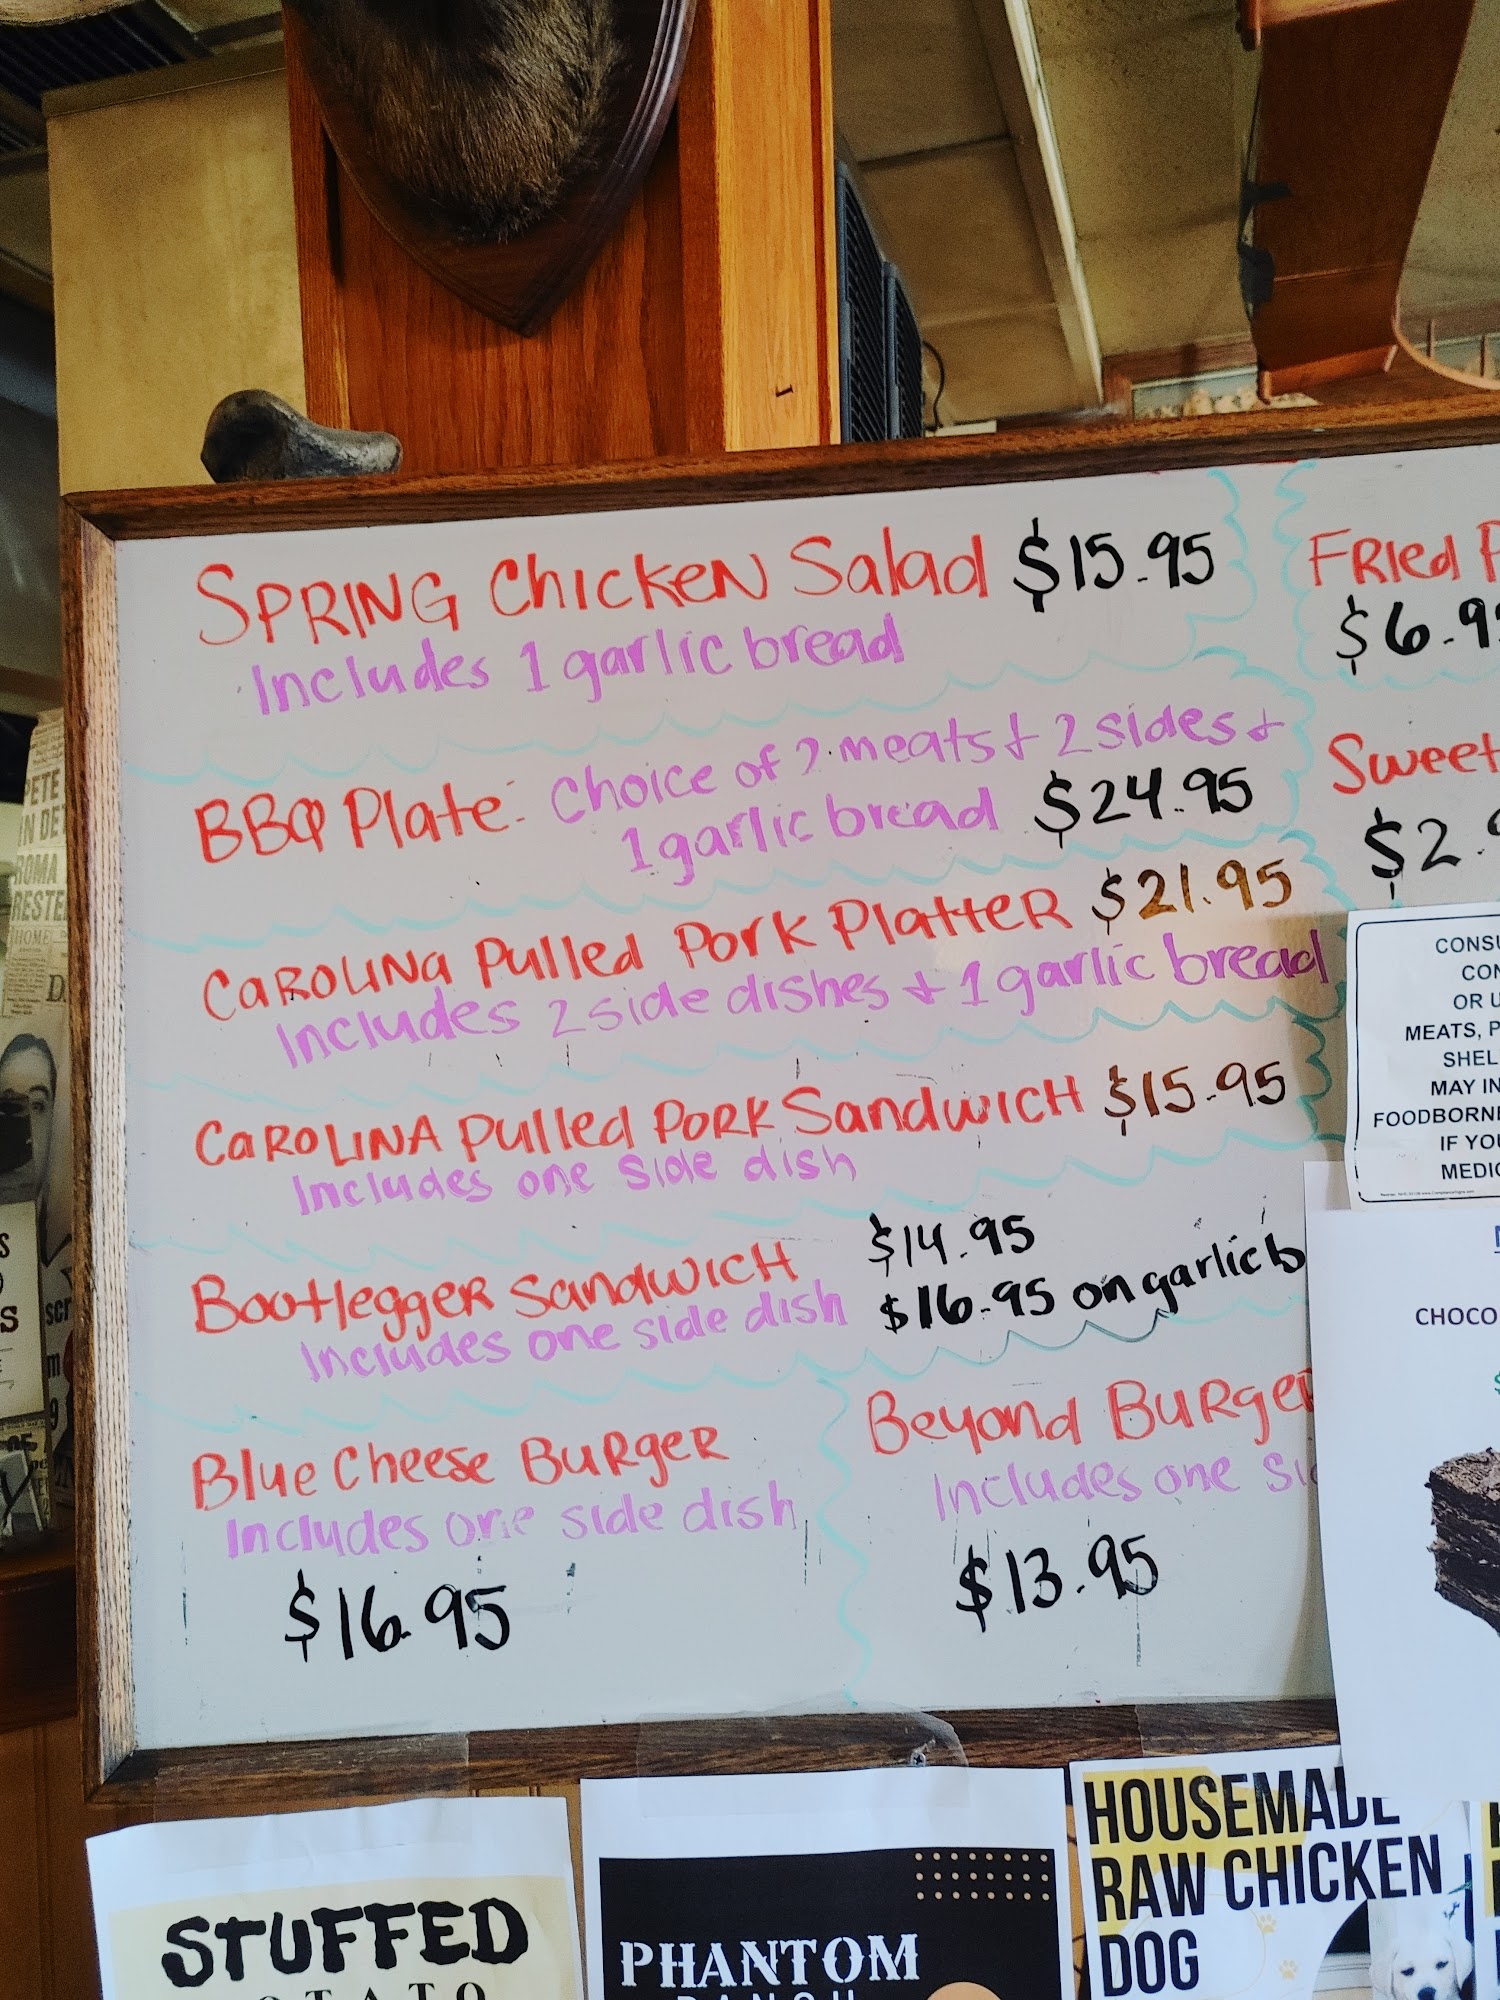 SPRING Chicken Salad $15.95
Includes 1 garlic bread
BBQ Plate: Choice of 2 meats + 2 sides +
1 garlic bread $24.95
CAROLINA Pulled Pork Platter $21.95
Includes 2 side dishes + 1 garlic bread
CAROLINA Pulled Pork Sandwich $15.95
Includes one side dish
Bootlegger Sandwich $14.95
Includes one side dish $16.95 on garlic b
Blue Cheese Burger
Includes one side dish
$16.95
Beyond Burger
Includes one
$13.95
Fried
$6.9
Sweet
$2.
MEATS,
MAY IN
FOODBORNE
IF YOU
CHOCO
PETE
IN DE
ROMA
RESTE
HOME
STUFFED
PHANTOM
HOUSEMADE
RAW CHICKEN
DOG